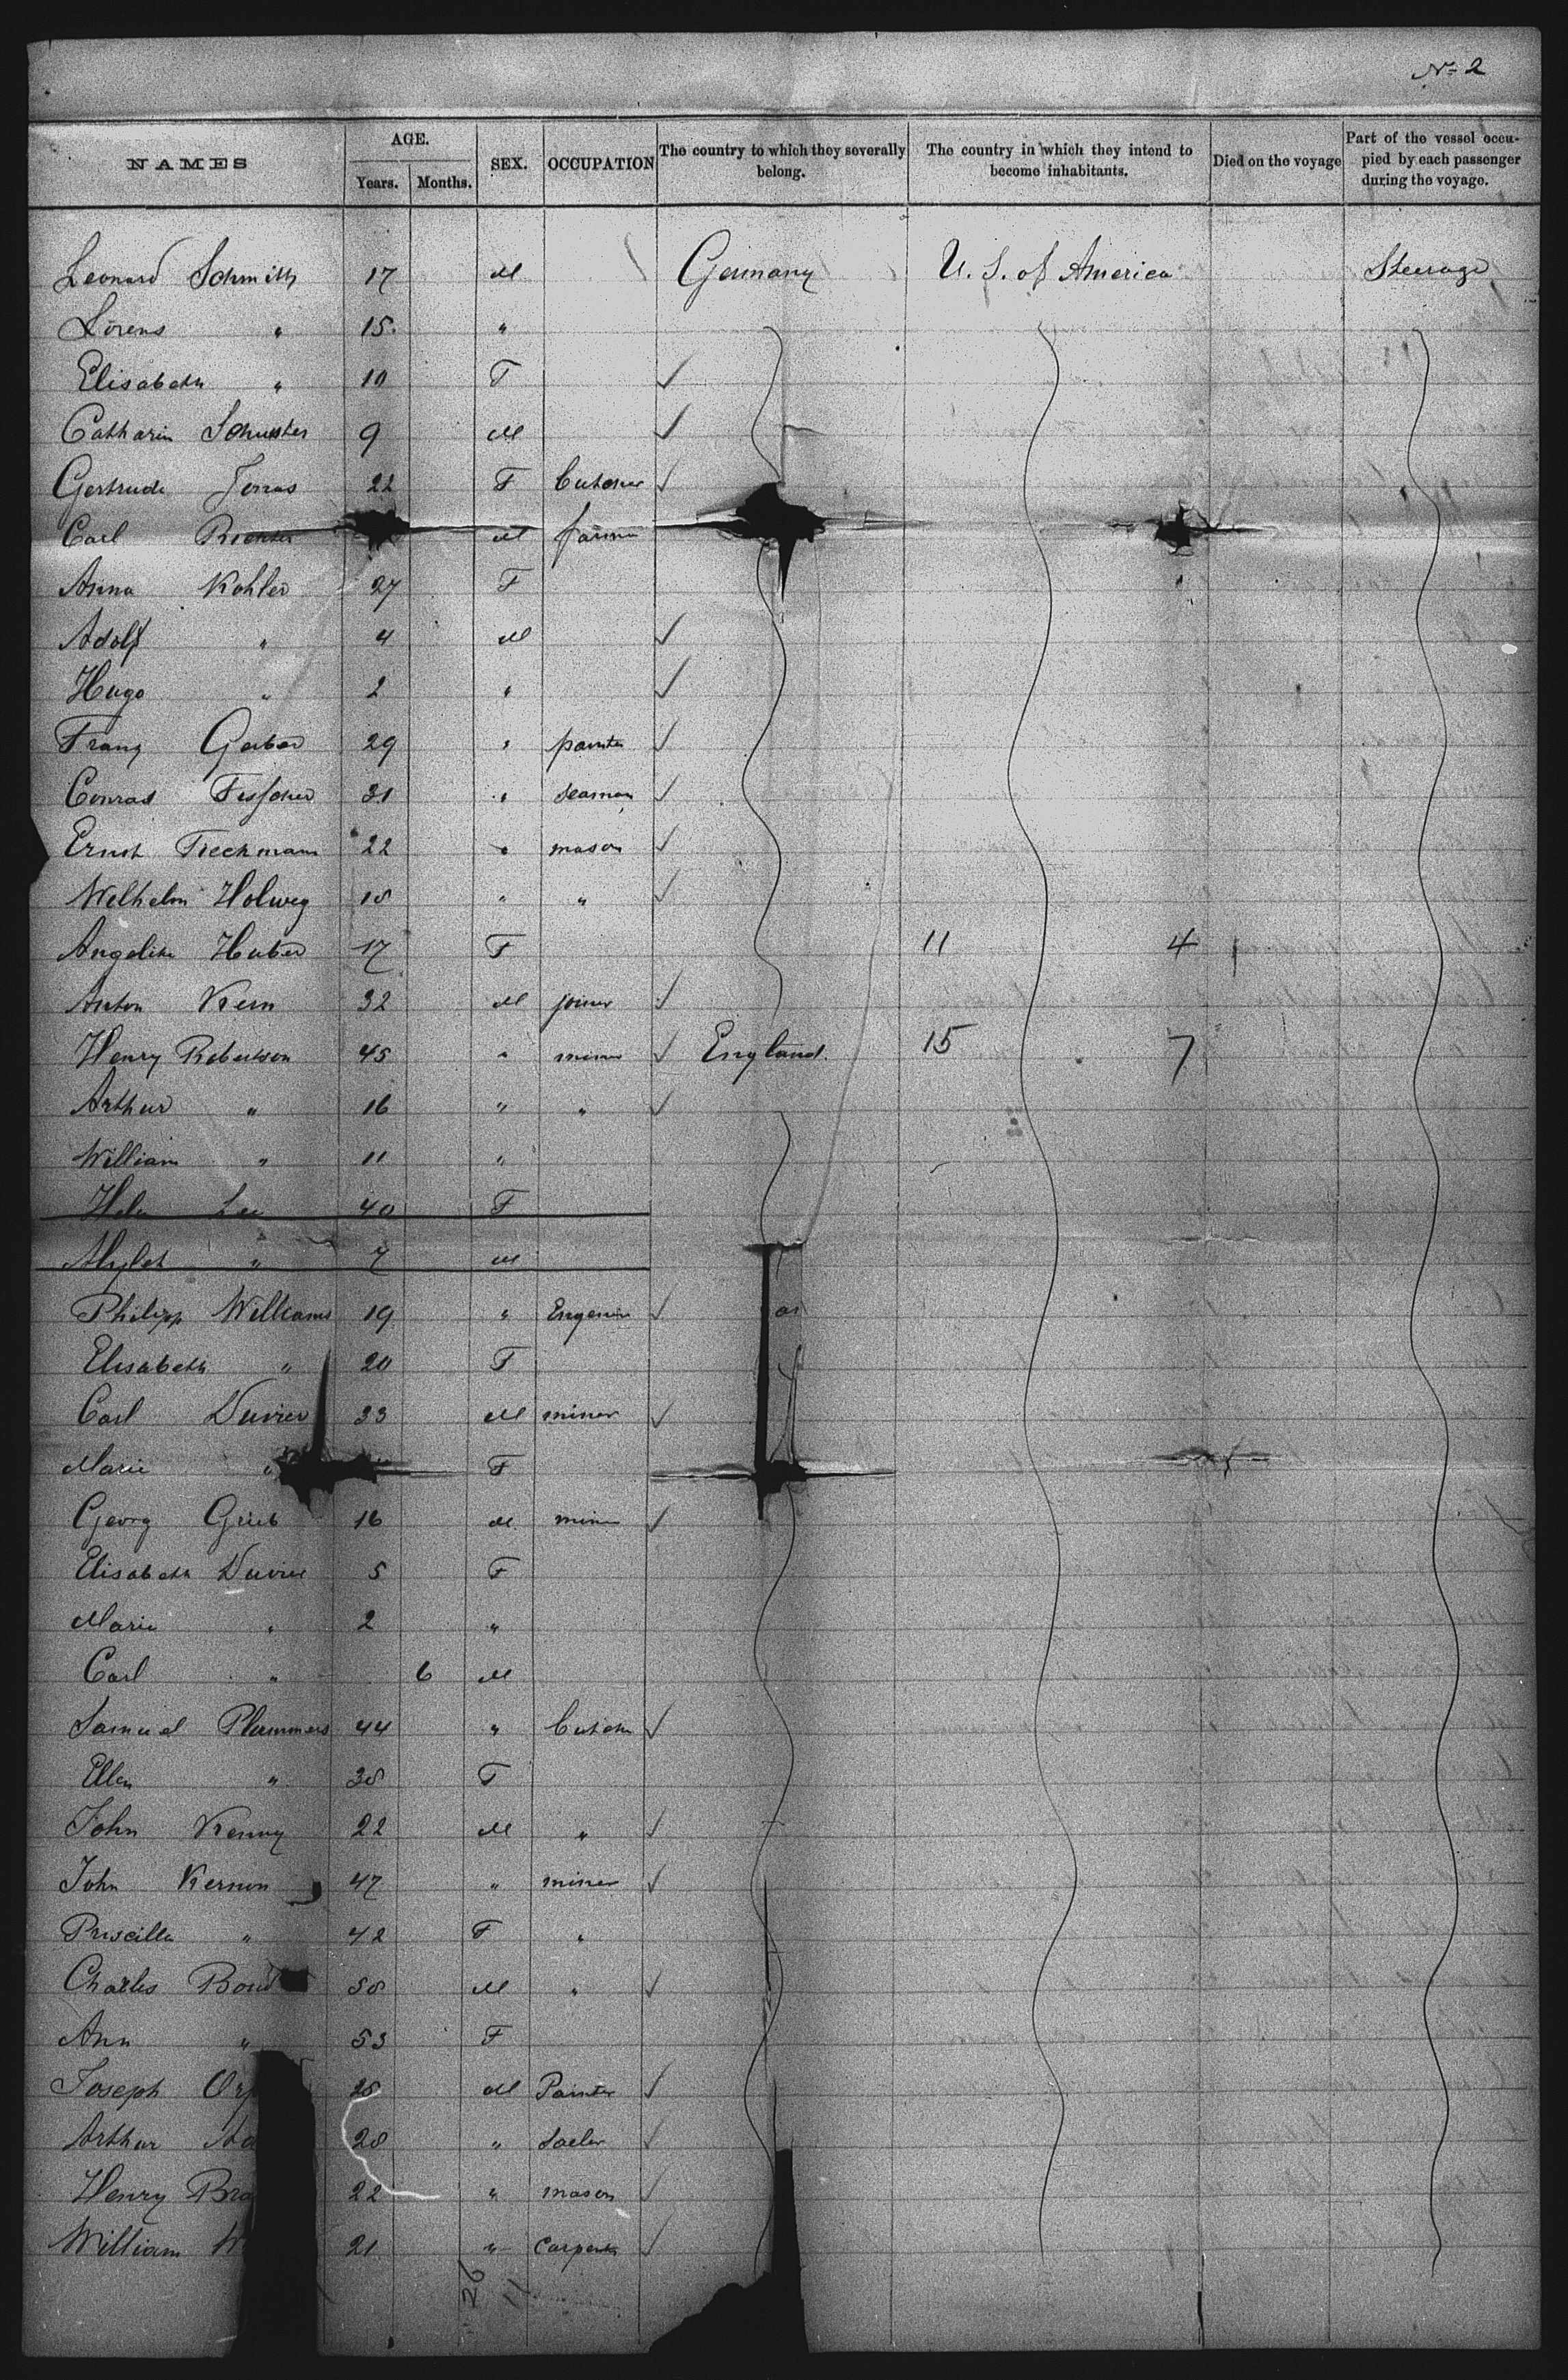 No 2
NAMES AGE. Years. Months. SEX. OCCUPATION The country to which they severally belong. The country in which they intend to become inhabitants. Died on the voyage Part of the vessel occupied by each passenger during the voyage.
Leonard Schmith 17 M Germany U. S. of America Steerage
Lorens " 15 "
Elisabeth " 10 F
Catharin Schuster 9 M
Gertrude 22 F
Carl M
Anna Kohler 27 F
Adolf " 4 M
Hugo " 2 "
Franz Gerber 29 " painter
Conrad 31 " seaman
Ernst 22 " mason
Wilhelm Holweg 18 " "
Angelike Huber 17 F 11 4
Anton Kern 32 M joiner
Henry Robertson 45 " miner England 15 7
Arthur " 16 " "
William " 11 "
Helen Lee 40 F
" 7 M
Philipp Williams 19 "
Elisabeth " 20 F
Carl 33 M miner
Marie " F
Georg 16 M miner
Elisabeth 5 F
Marie " 2 "
Carl " 6 M
Samuel Plummers 44 "
Ellen " 38 F
John Kenny 22 M "
John Kernon 47 " miner
Priscilla " 42 F "
Charles 58 M "
Ann " 53 F
Joseph M Painter
Arthur 28 "
Henry 22 " mason
William 21 " Carpenter
26 11